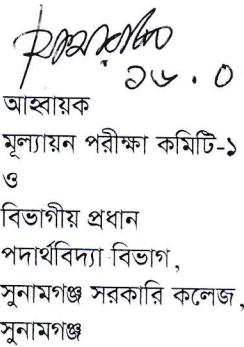 ১৬.০
আহ্বায়ক
মূল্যায়ন পরীক্ষা কমিটি-১
ও
বিভাগীয় প্রধান
পদার্থবিদ্যা বিভাগ,
সুনামগঞ্জ সরকারি কলেজ,
সুনামগঞ্জ